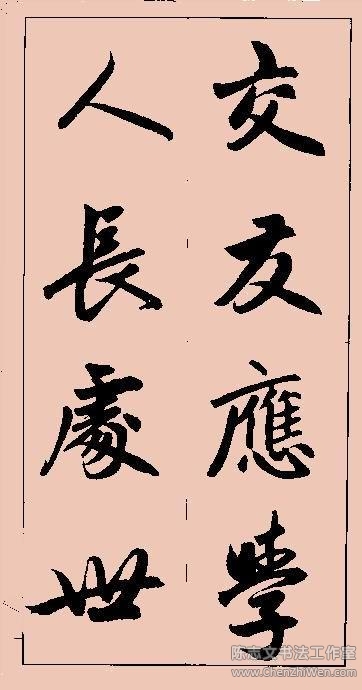 交友應學
人長處世
陈志文书法工作室
www.chenzhiwen.com